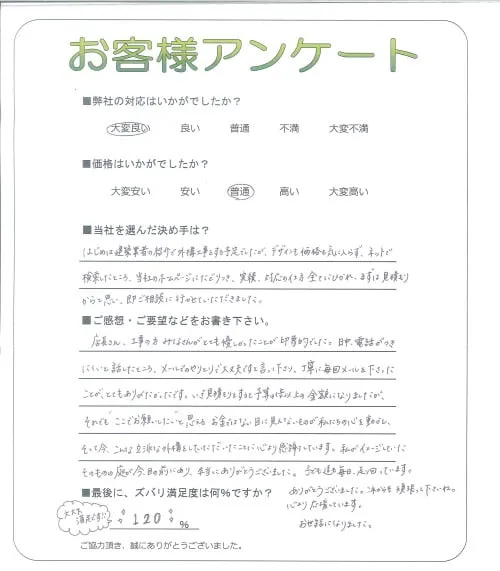 お客様アンケート
■弊社の対応はいかがでしたか？
大変良い 良い 普通 不満 大変不満
■価格はいかがでしたか？
大変安い 安い 普通 高い 大変高い
■当社を選んだ決め手は？
はじめは建築業者の紹介で外構工事をする予定でしたが、デザインも価格も気に入らず、ネットで
検索したところ、当社のホームページにたどりつき、実績、対応の仕方全てにひかれ、まずは見積もり
からと思い、即ご相談に行かせていただきました。
■ご感想・ご要望などをお書き下さい。
店長さん、工事の方みなさんがとても優しかったことが印象的でした。日中、電話がつき
にくいと話したところ、メールでのやりとりで大丈夫ですと言って下さり、丁寧に毎回メールを下さった
ことが、とてもありがたかったです。いざ見積もりをすると予算の倍以上の金額になりましたが、
それでも"ここでお願いしたい"と思える、お金ではない目に見えないものが私たちの心を動かし、
そして今、こんな立派な外構をしていただいたことに心より感謝しています。私がイメージしていた
そのものの庭が今目の前にあり、本当にありがとうございました。子ども達も毎日、走り回っています。
■最後に、ズバリ満足度は何％ですか？
ありがとうございました。これからも頑張って下さいね。
心より応援しています。
お世話になりました。
大大大満足です!!
120 %
ご協力頂き、誠にありがとうございました。